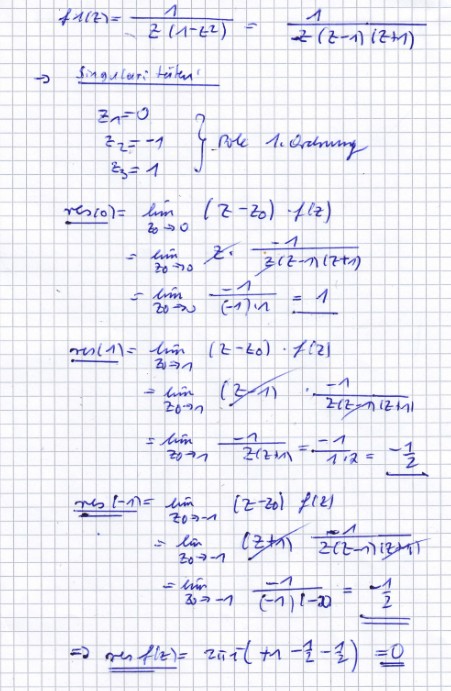 f1(z) = 1 / z(1-z²) = 1 / z(z-1)(z+1)
→ Singularitäten:
z₁=0
z₂=-1 } Pole 1. Ordnung
z₃=1
res(0) = lim z₀→0 (z-z₀) · f(z)
= lim z₀→0 z · -1 / z(z-1)(z+1)
= lim z₀→0 -1 / (-1)·1 = 1
res(1) = lim z₀→1 (z-z₀) · f(z)
= lim z₀→1 (z-1) · -1 / z(z-1)(z+1)
= lim z₀→1 -1 / z(z+1) = -1 / 1·2 = -1/2
res(-1) = lim z₀→-1 (z-z₀) f(z)
= lim z₀→-1 (z+1) -1 / z(z-1)(z+1)
= lim z₀→-1 -1 / (-1)(-2) = -1/2
⇒ res f(z) = 2πi (+1 - 1/2 - 1/2) = 0